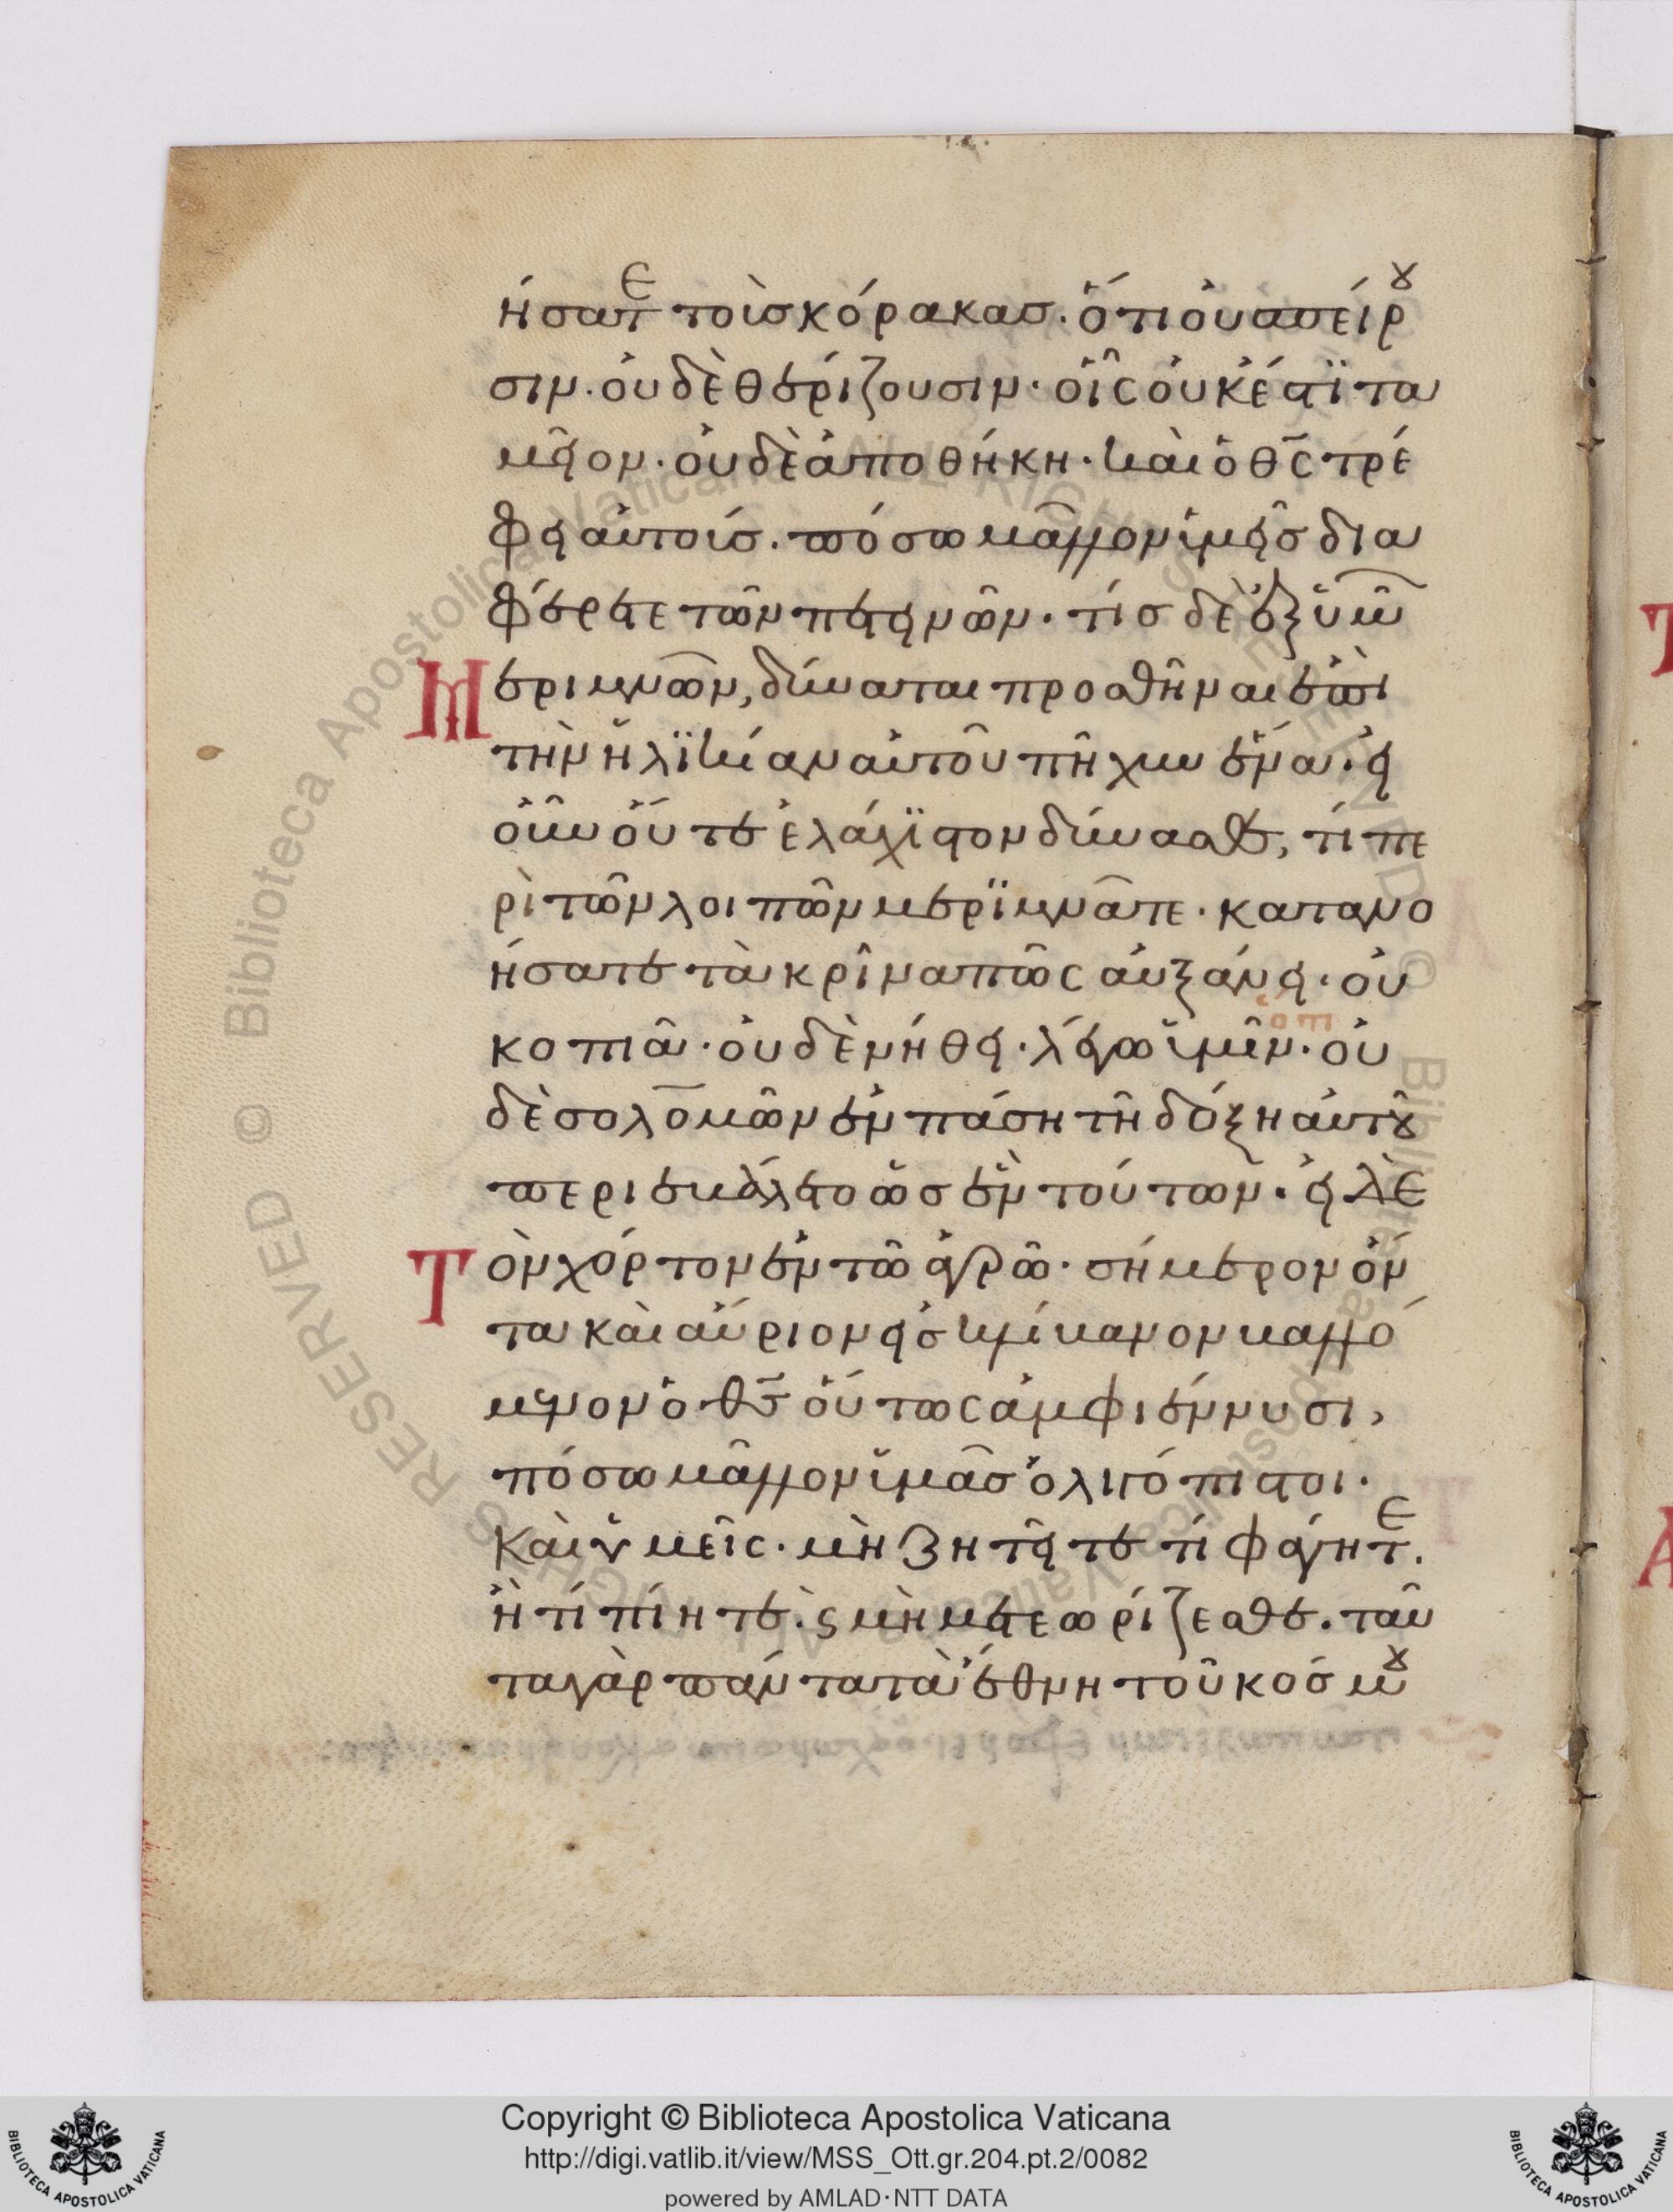 ήσατε τοὺς κόρακας. ὅτι οὐ σπείρου
σιν. οὐδὲ θερίζουσιν. οἷς οὐκ ἔστϊ τα
μεῖον. οὐδὲ ἀποθήκη. καὶ ὁ θς τρέ
φει αὐτούς. πόσω μᾶλλον ὑμεῖς δια
φέρετε τῶν πετεινῶν. τίς δὲ ἐξ ὑμῶ
Μεριμνῶν, δύναται προσθῆναι ἐπὶ
τὴν ἡλϊκίαν αὐτοῦ πῆχυν ἕνα. εἰ
οὖν οὔτε ἐλάχϊστον δύνασθε, τί πε
ρὶ τῶν λοιπῶν μερϊμνᾶτε. κατανο
ήσατε τὰ κρίνα πῶς αὐξάνει. οὐ
κοπιᾶ. οὐδὲ νήθει. λέγω ὑμῖν. οὐ
ὅτι
δὲ σολομῶν ἐν πάση τῆ δόξη αὐτοῦ
περιεβάλετο ὡς ἓν τούτων. εἰ δὲ
Τὸν χόρτον ἐν τῶ ἀγρῶ. σήμερον ὄν
τα καὶ αὔριον εἰς κλίβανον βαλλό
μενον ὁ θς οὕτως ἀμφιέννυσι,
πόσω μᾶλλον ὑμᾶς ὀλιγόπιστοι.
Καὶ ὑμεῖς. μὴ ζητεῖτε τί φάγητε.
ἢ τί πίητε. ϛ μὴ μετεωρίζεσθε. ταῦ
τα γὰρ πάντα τὰ ἔθνη τοῦ κόσμου
Copyright © Biblioteca Apostolica Vaticana
http://digi.vatlib.it/view/MSS_Ott.gr.204.pt.2/0082
powered by AMLAD·NTT DATA
BIBLIOTECA APOSTOLICA VATICANA
BIBLIOTECA APOSTOLICA VATICANA